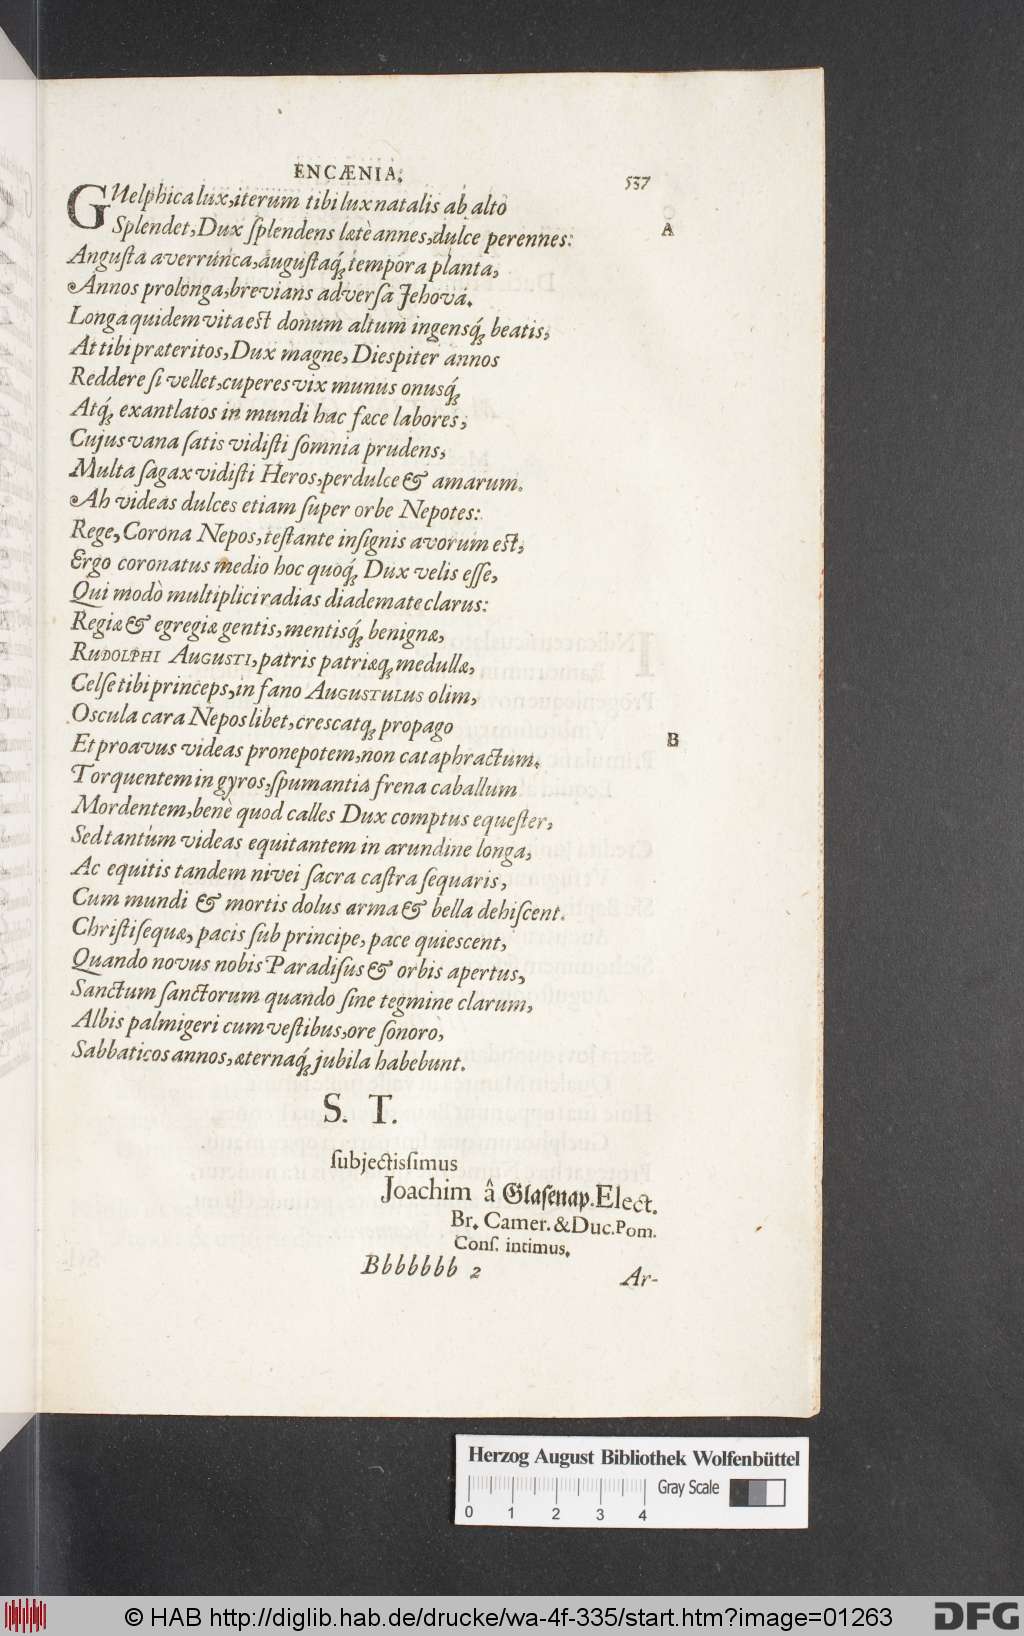 ENCÆNIA.
537
GUelphica lux, iterum tibi lux natalis ab alto
Splendet, Dux ſplendens latè annes, dulce perennes:
A
Anguſta averrunca, auguſtaq́; tempora planta,
Annos prolonga, brevians adverſa Jehova.
Longa quidem vita est donum altum ingensq́; beatis,
At tibi præteritos, Dux magne, Dieſpiter annos
Reddere ſi vellet, cuperes vix munus onusq́;
Atq́; exantlatos in mundi hac fæce labores,
Cujus vana ſatis vidiſti ſomnia prudens,
Multa ſagax vidiſti Heros, perdulce & amarum.
Ah videas dulces etiam ſuper orbe Nepotes:
Rege, Corona Nepos, teſtante inſignis avorum est,
Ergo coronatus medio hoc quoq́; Dux velis eſſe,
Qui modò multiplici radias diademate clarus:
Regiæ & egregiæ gentis, mentisq́; benignæ,
RUDOLPHI AUGUSTI, patris patriæq; medullæ,
Celſe tibi princeps, in fano AUGUSTULUS olim,
Oscula cara Nepos libet, crescatq; propago
B
Et proavus videas pronepotem, non cataphractum.
Torquentem in gyros, ſpumantia frena caballum
Mordentem, benè quod calles Dux comptus equeſter,
Sed tantùm videas equitantem in arundine longa,
Ac equitis tandem nivei ſacra caſtra ſequaris,
Cum mundi & mortis dolus arma & bella dehiſcent.
Chriſtiſequæ, pacis ſub principe, pace quieſcent,
Quando novus nobis Paradiſus & orbis apertus,
Sanctum ſanctorum quando ſine tegmine clarum,
Albis palmigeri cum veſtibus, ore ſonoro,
Sabbaticos annos, æternaq́; jubila habebunt.
S. T.
ſubjectiſsimus
Joachim â Glaſenap. Elect.
Br. Camer. & Duc. Pom.
Conſ. intimus.
Bbbbbbb 2
Ar-
Herzog August Bibliothek Wolfenbüttel
Gray Scale
0 1 2 3 4
© HAB http://diglib.hab.de/drucke/wa-4f-335/start.htm?image=01263
DFG